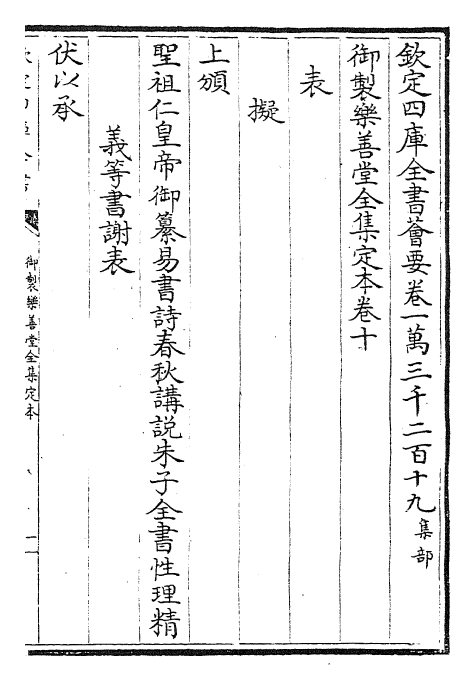 欽定四庫全書薈要卷一萬三千二百十九集部
御製樂善堂全集定本卷十
表
擬
上頒
聖祖仁皇帝御纂易書詩春秋講說朱子全書性理精
義等書謝表
伏以承
御製樂善堂全集定本
一